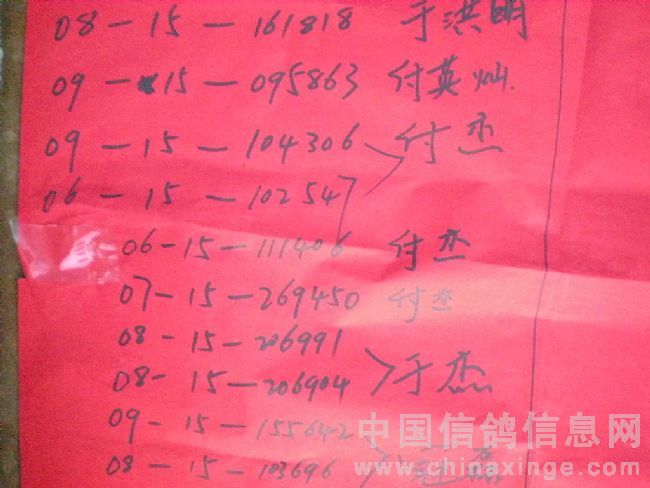 08-15-161818 于洪明
09-15-095863 付英灿
09-15-104306 付杰
06-15-102547
06-15-111406 付杰
07-15-269450 付杰
08-15-206991
08-15-206904 于杰
09-15-155642
08-15-103696
中国信鸽信息网
www.chinaxinge.com